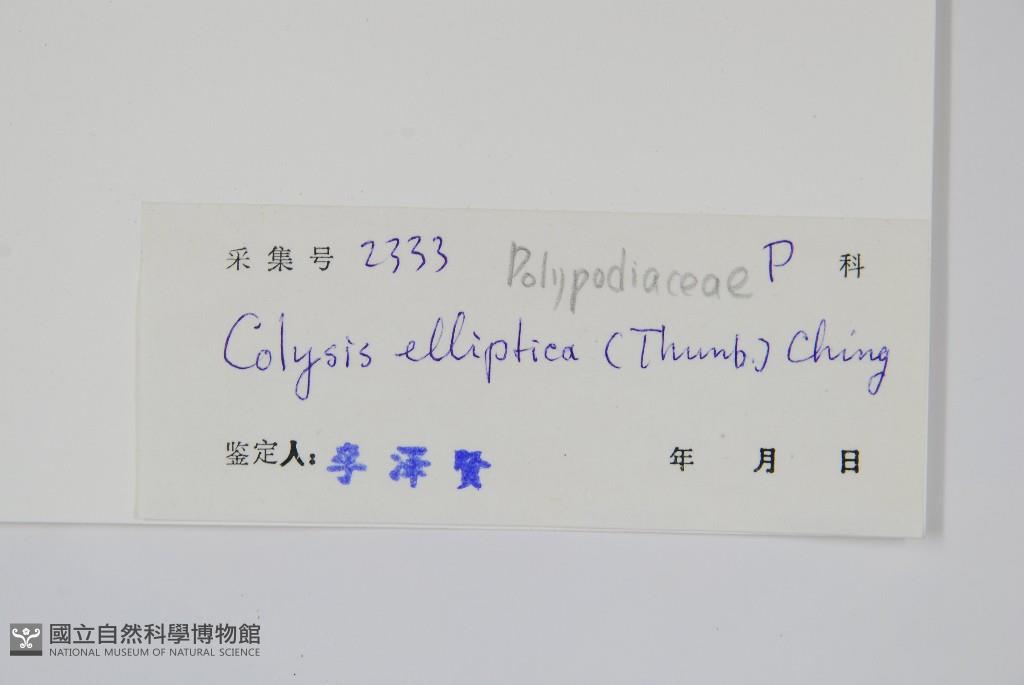 采集号 2333 Polypodiaceae P 科
Colysis elliptica (Thunb.) Ching
鉴定人: 李泽贤 年 月 日
國立自然科學博物館
NATIONAL MUSEUM OF NATURAL SCIENCE